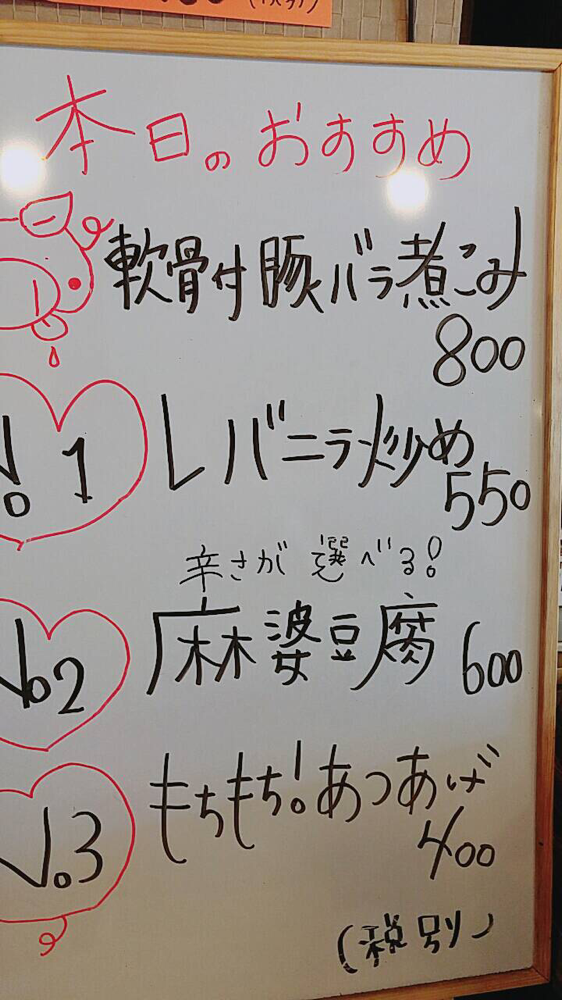 本日のおすすめ
軟骨付豚バラ煮こみ
800
No.1
レバニラ炒め
550
辛さが選べる!
No.2
麻婆豆腐 600
No.3
もちもち!あつあげ
400
(税別)